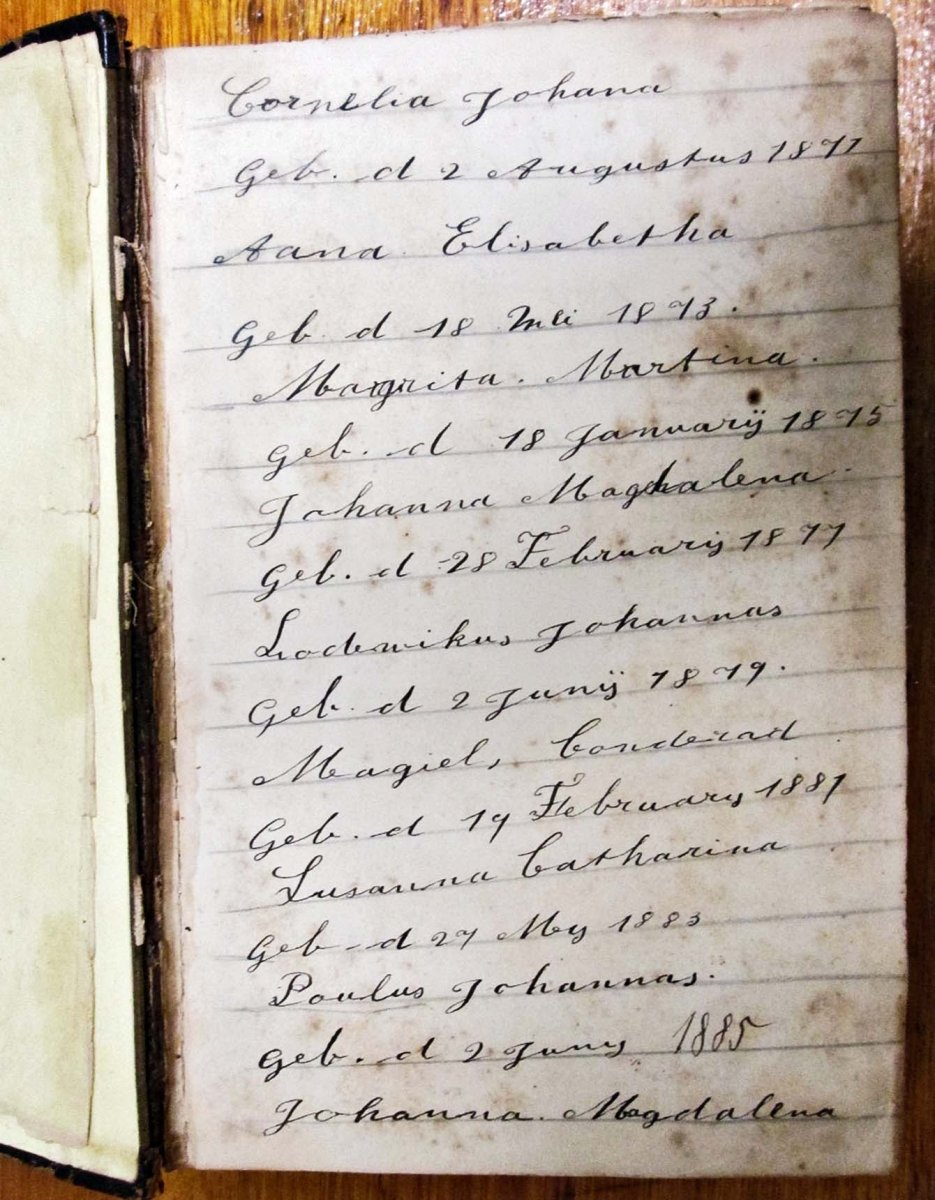 Cornelia Johana
Geb. d 2 Augustus 1871
Aana Elisabetha
Geb d 18 Mei 1873.
Magrita. Martina.
Geb. d 18 Januarij 1875
Johanna Magdalena.
Geb. d 28 Februarij 1877
Lodewikus Johannas
Geb. d 2 Junij 1879.
Magiel, Conderad
Geb. d 19 February 1881
Susanna Catharina
Geb - d 27 Mey 1883
Poulus Johannas.
Geb. d 2 Juny 1885
Johanna. Magdalena